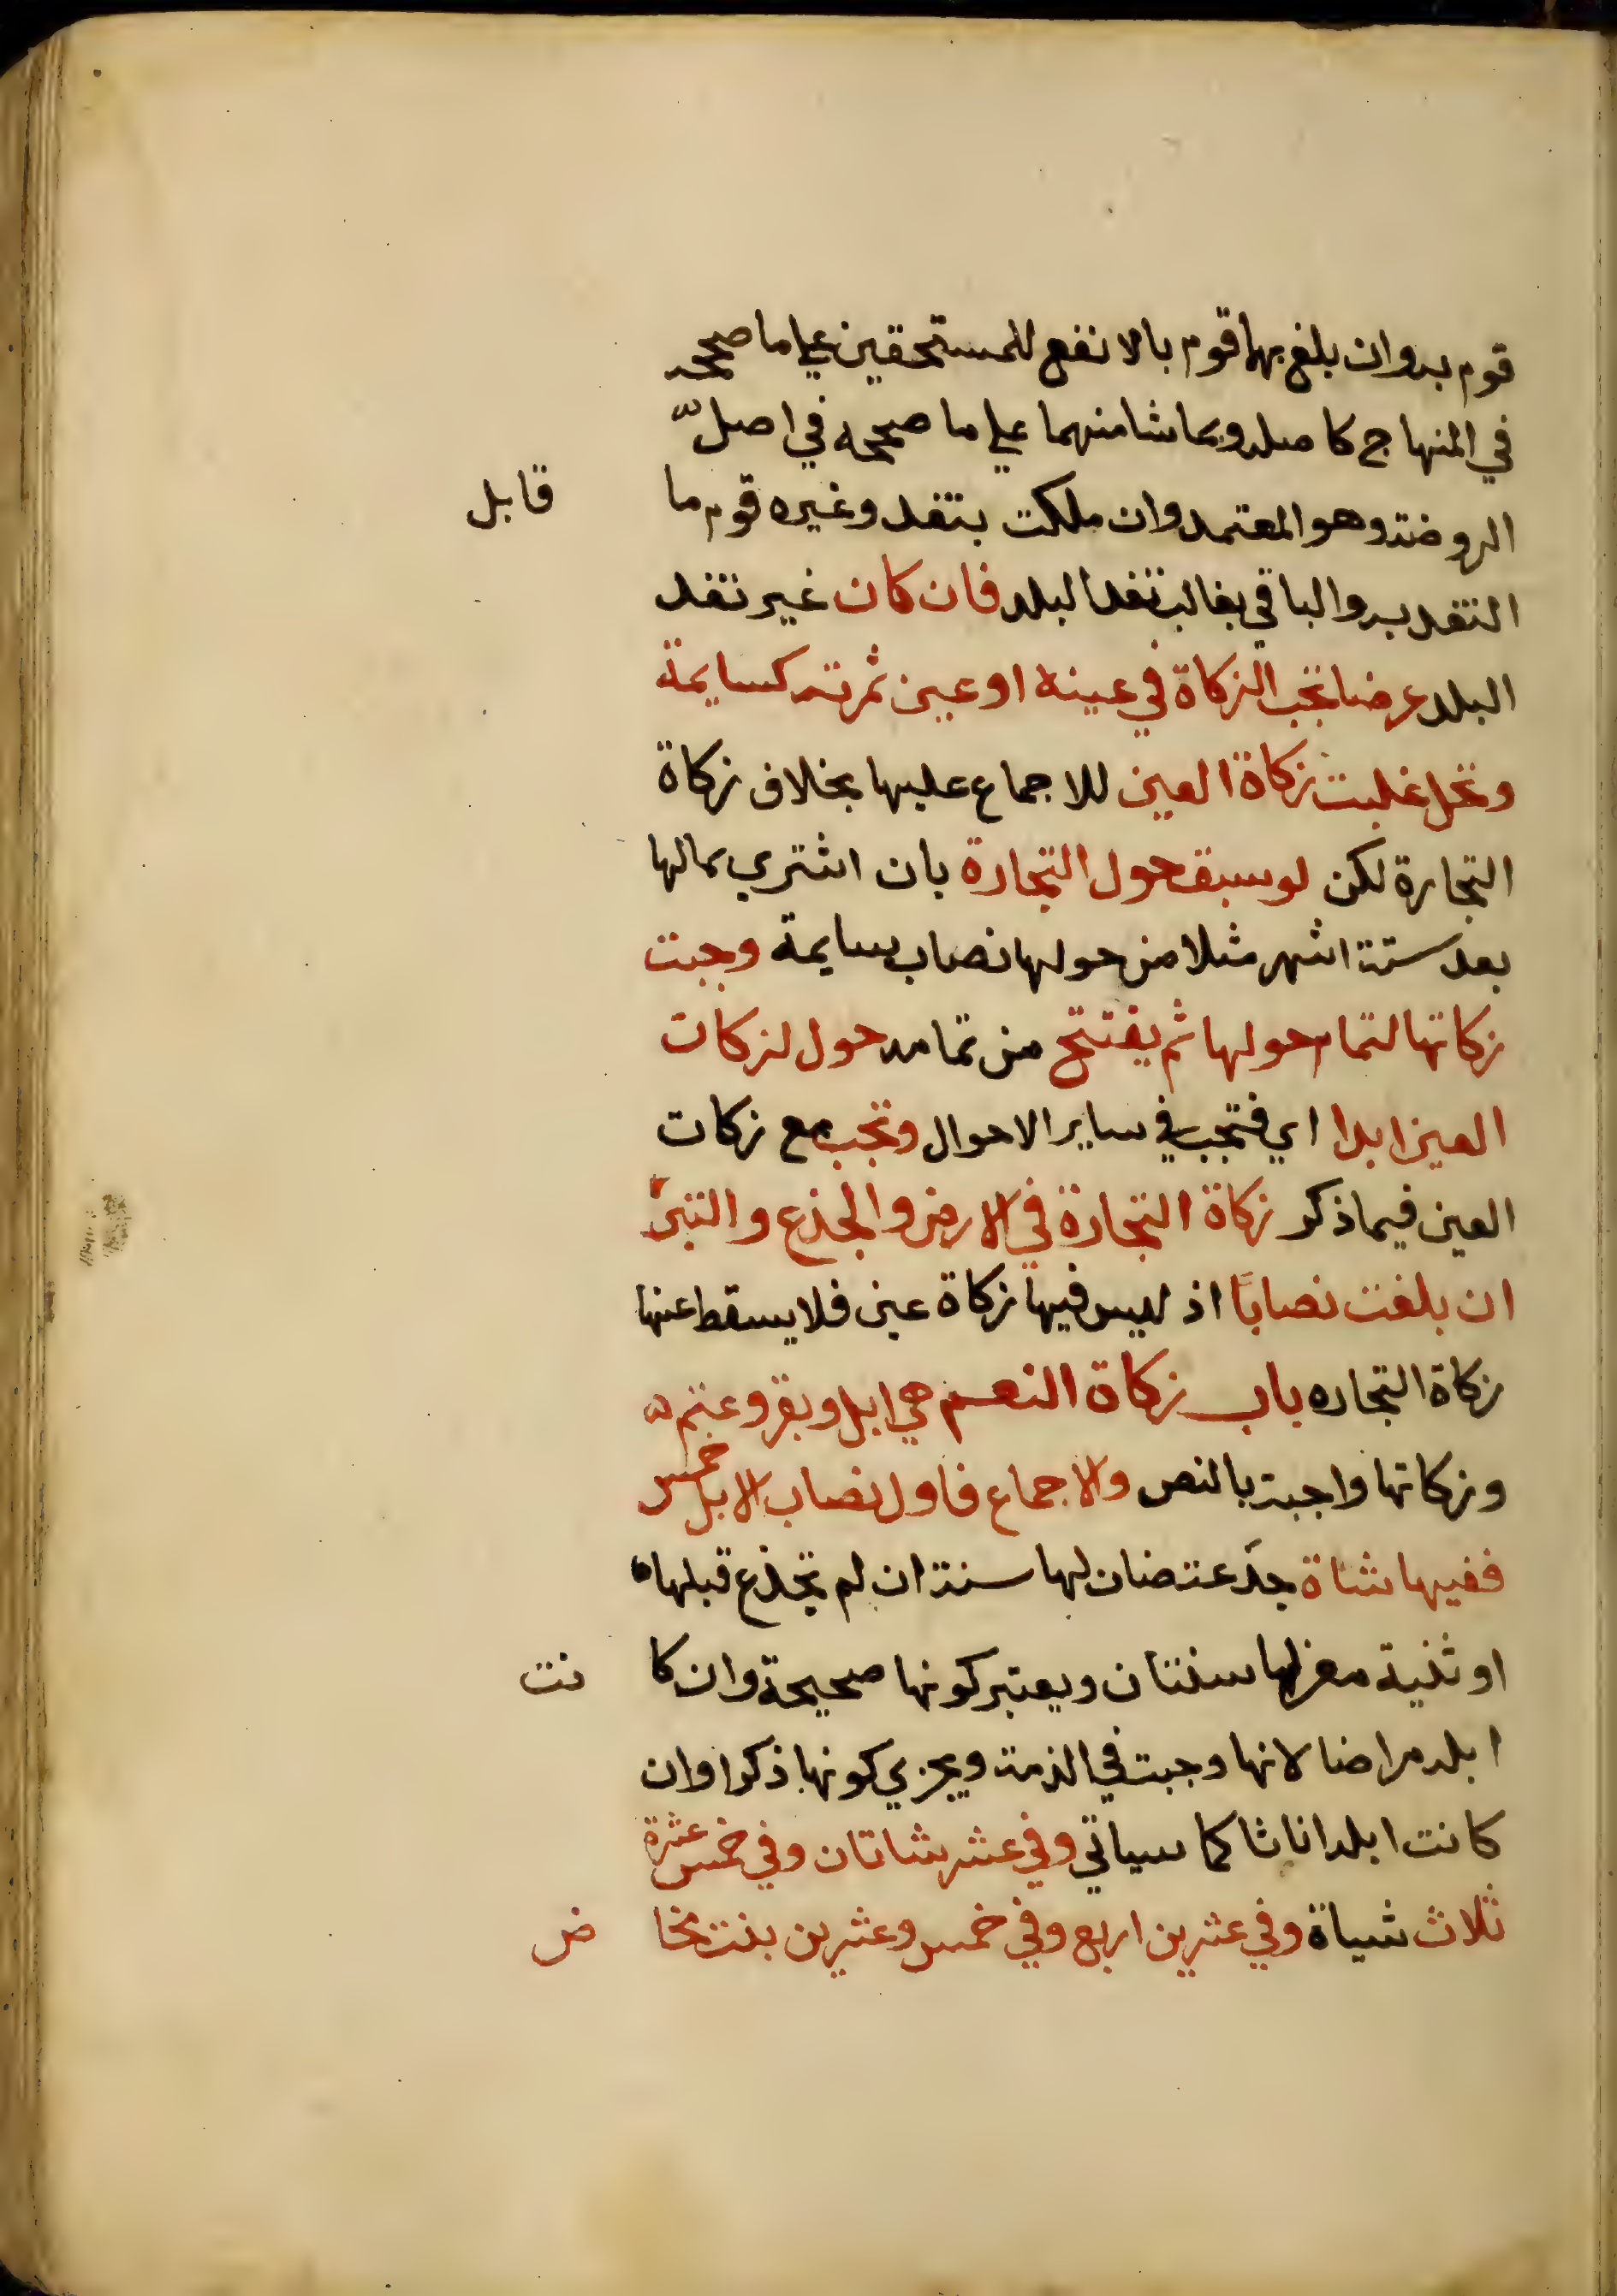 قوم به وان بلغ بهما قوم بالانفع للمستحقين علي ما صححه
في المنهاج كاصله وبما شا منهما علي ما صححه في اصل
الروضة وهو المعتمد وان ملكت بنقد وغيره قوم ما قابل
النقد به والباقي بغالب نقد البلد فان كان غير نقد
البلد عرضا تجب الزكاة في عينه او عين ثمرته كسايمة
ونخل غلبت زكاة العين للاجماع عليها بخلاف زكاة
التجارة لكن لو سبق حول التجارة بان اشتري بمالها
بعد ستة اشهر مثلا من حولها نصاب سايمة وجبت
زكاتها لتمام حولها ثم يفتتح من تمامه حول لزكات
العين ابدا اي فتجب في ساير الاحوال وتجب مع زكات
العين فيما ذكر زكاة التجارة في الارض والجذع والتبن
ان بلغت نصابا اذ ليس فيها زكاة عين فلا يسقط عنها
زكاة التجاره باب زكاة النعم هي ابل وبقر وغنم
وزكاتها واجبة بالنص والاجماع فاول نصاب الابل خمس
ففيها شاة جذعة ضان لها سنة ان لم تجذع قبلها
او ثنية معز لها سنتان ويعتبر كونها صحيحة وان كا نت
ابله مراضا لانها وجبت في الذمة ويجزي كونها ذكرا وان
كانت ابله اناثا كما سياتي وفي عشر شاتان وفي خمس عشرة
ثلاث شياة وفي عشرين اربع وفي خمس وعشرين بنت مخا ض